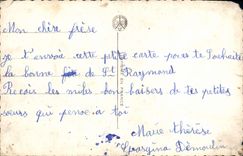 Mon chère frère
je t'envoi cette petite carte pour te souhaité
la bonne fête de St Raymond
Recois les milles bon baisers de tes petites
sœurs qui pense a toi
Marie thérèse
Georgina